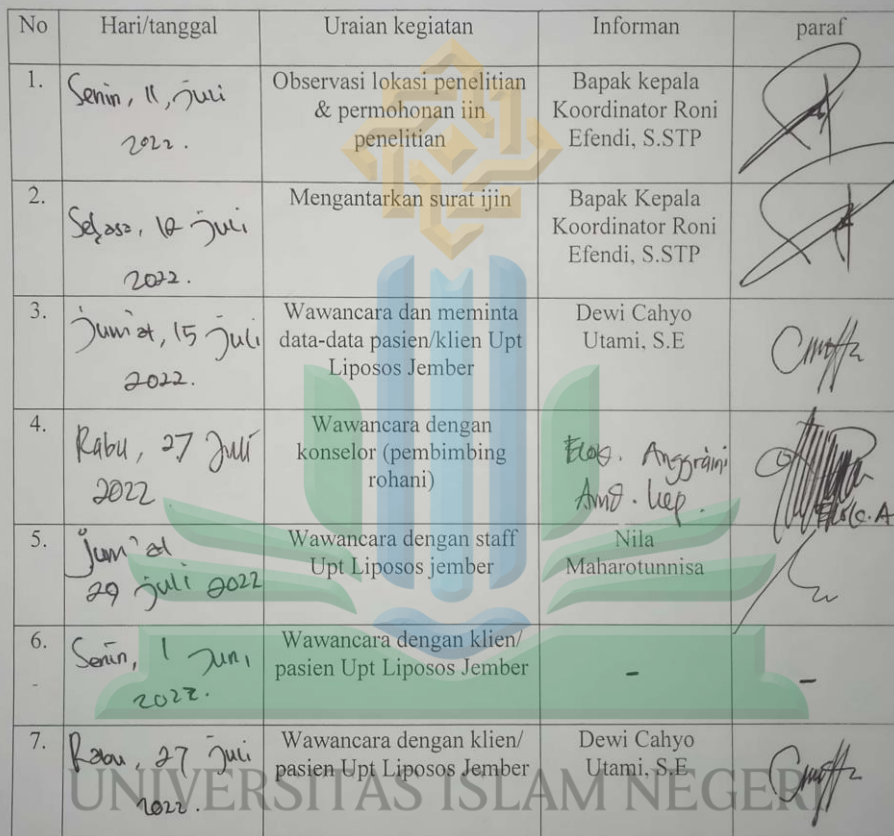 No Hari/tanggal Uraian kegiatan Informan paraf
1. Senin, 11, juli
2022.
Observasi lokasi penelitian
& permohonan iin
penelitian
Bapak kepala
Koordinator Roni
Efendi, S.STP
2. Selasa, 12 juli
2022.
Mengantarkan surat ijin
Bapak Kepala
Koordinator Roni
Efendi, S.STP
3. Jum'at, 15 Juli
2022.
Wawancara dan meminta
data-data pasien/klien Upt
Liposos Jember
Dewi Cahyo
Utami, S.E
4. Rabu, 27 Juli
2022
Wawancara dengan
konselor (pembimbing
rohani)
Anggraini
Amd. kep.
5. Jum'at
29 juli 2022
Wawancara dengan staff
Upt Liposos jember
Nila
Maharotunnisa
6. Senin, 1 Juni
2022.
Wawancara dengan klien/
pasien Upt Liposos Jember
-
-
7. Rabu, 27 Juli
2022.
Wawancara dengan klien/
pasien Upt Liposos Jember
Dewi Cahyo
Utami, S.E
UNIVERSITAS ISLAM NEGERI